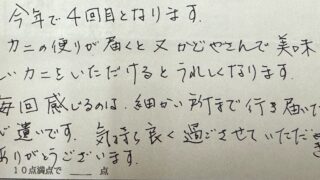 今年で4回目となります.
カニの便りが届くと又 かどやさんで美味
しいカニをいただけるとうれしくなります.
毎回感じるのは、細かい所まで行き届いた
心遣いです. 気持ち良く過ごさせていただき
ありがとうございます.
10点満点で ____ 点